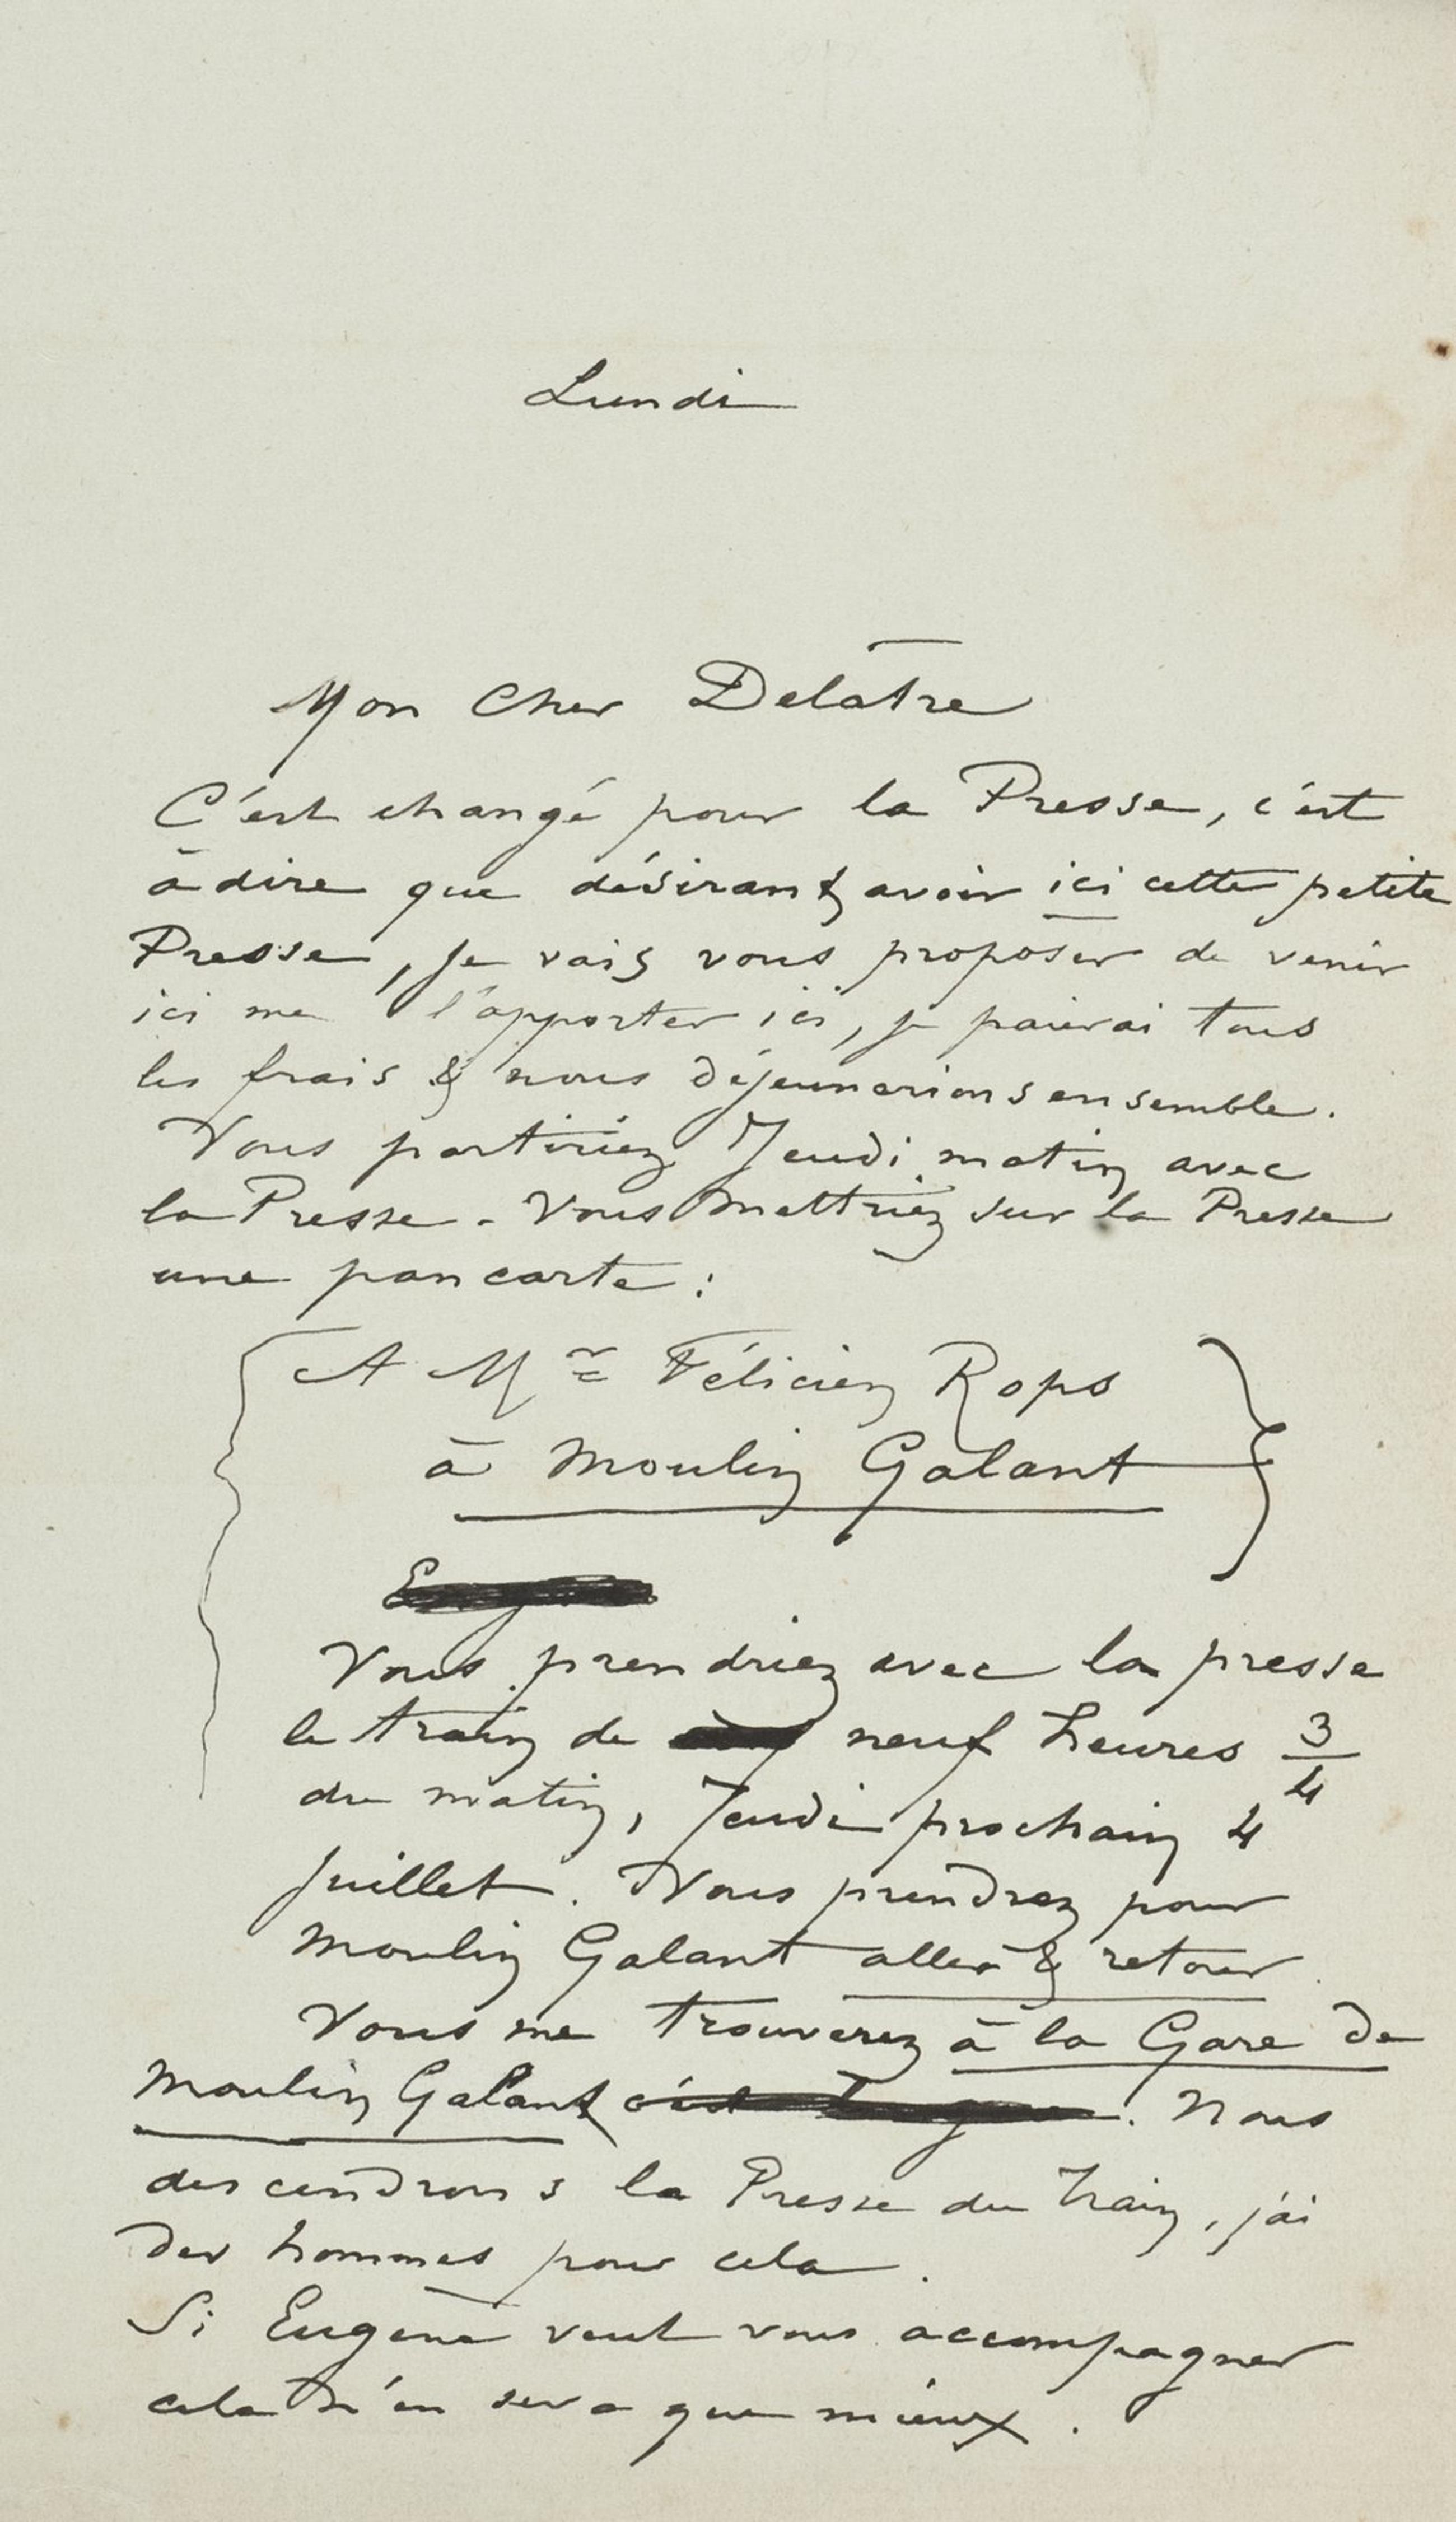 Lundi
Mon Cher Delâtre
C'est changé pour la Presse, c'est
à dire que désirant avoir ici cette petite
Presse, je vais vous proposer de venir
ici me l'apporter ici, je paierai tous
les frais & nous déjeunerions ensemble.
Vous partiriez Jeudi matin avec
la Presse. Vous mettriez sur la Presse
une pancarte :
A Mr Félicien Rops
à Moulin Galant
Vous prendriez avec la presse
le train de neuf heures 3/4
du matin, Jeudi prochain 4
juillet. Vous prendrez pour
Moulin Galant aller & retour
Vous me trouverez à la Gare de
Moulin Galant c'est. Nous
descendrons la Presse du train, j'ai
des hommes pour cela.
Si Eugène veut vous accompagner
cela n'en sera que mieux.